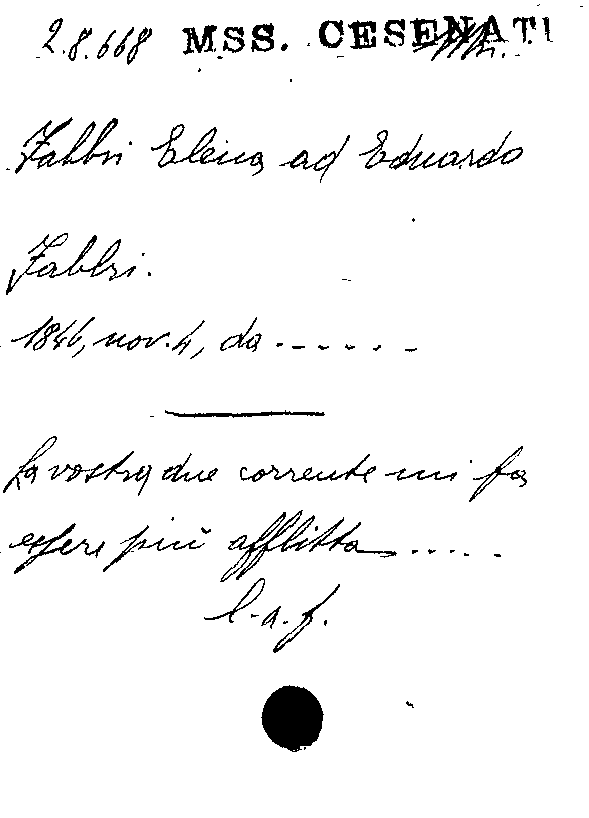 2.8.668 MSS. CESENATI
Fabbri Elena ad Eduardo
Fabbri.
1846, nov. 4, da ......
La vostra due corrente mi fa
essere più afflitta .....
l. a. f.